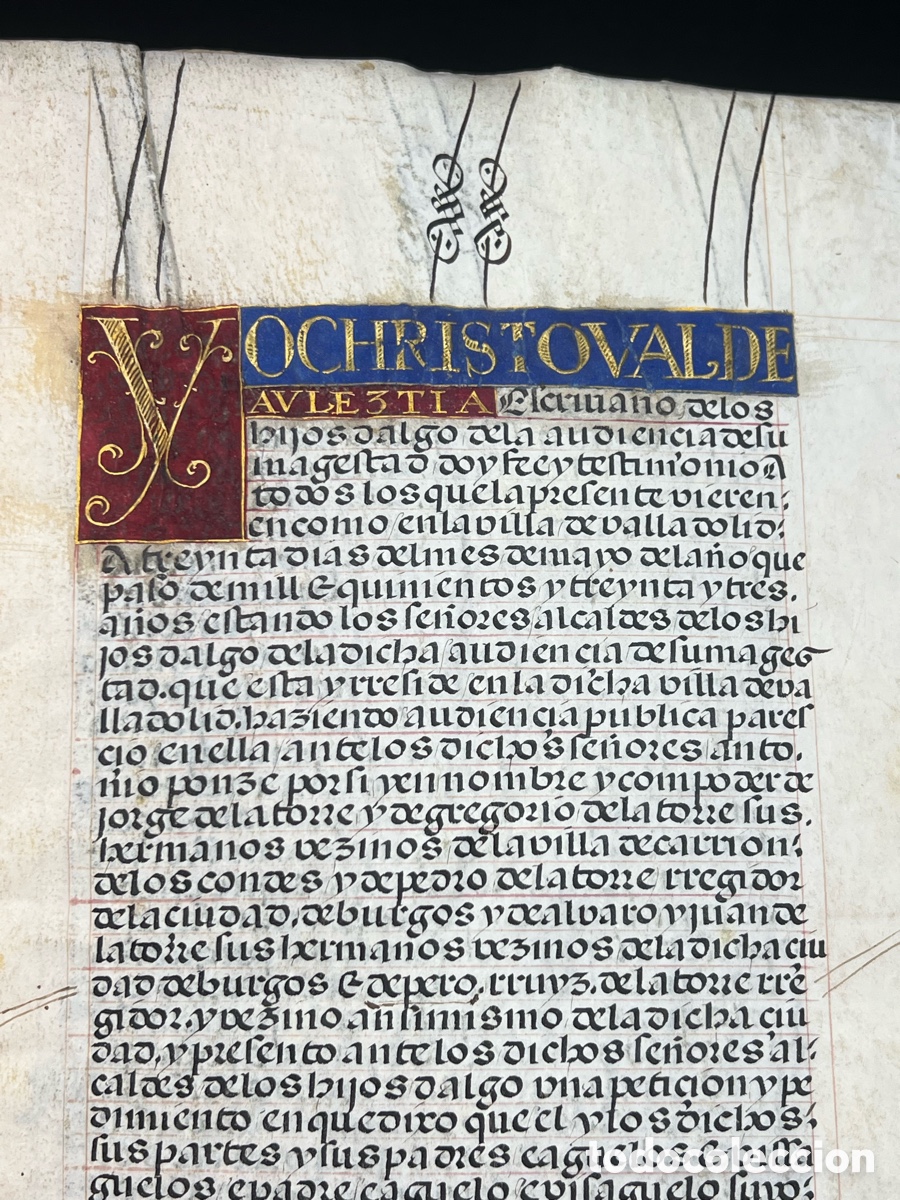 YO CHRISTOVAL DE
AVLE3TIA Escriuano delos
hijos dalgo dela audiencia de su
magestad doy fee y testimonio A
todos los que la presente vieren:
en como en la villa de valladolid:
A treynta dias del mes de mayo del año que
paso de mill & quinientos y treynta y tres.
años estando los señores alcaldes delos hi
jos dalgo dela dicha audiencia de su mages
tad. que esta y rreside en la dicha villa de va
lladolid. haziendo audiencia publica pares
cio en ella ante los dichos señores anto.
nio ponze por si y en nombre y com poder de
jorge dela torre y de gregorio dela torre sus.
hermanos vezinos dela villa de carrion:
delos condes y de pedro dela torre rregidor
dela ciudad. de burgos y de alvaro y juan de
la torre sus hermanos vezinos dela dicha ciu
dad de burgos & de pero. rruyz. dela torre rre
gidor. y vezino ansimismo dela dicha ciu
dad. y presento ante los dichos señores al:
caldes delos hijos dalgo vna peticion y pe
dimiento en que dixo que el y los dichos:
sus partes y sus padres
guelos
todocoleccion